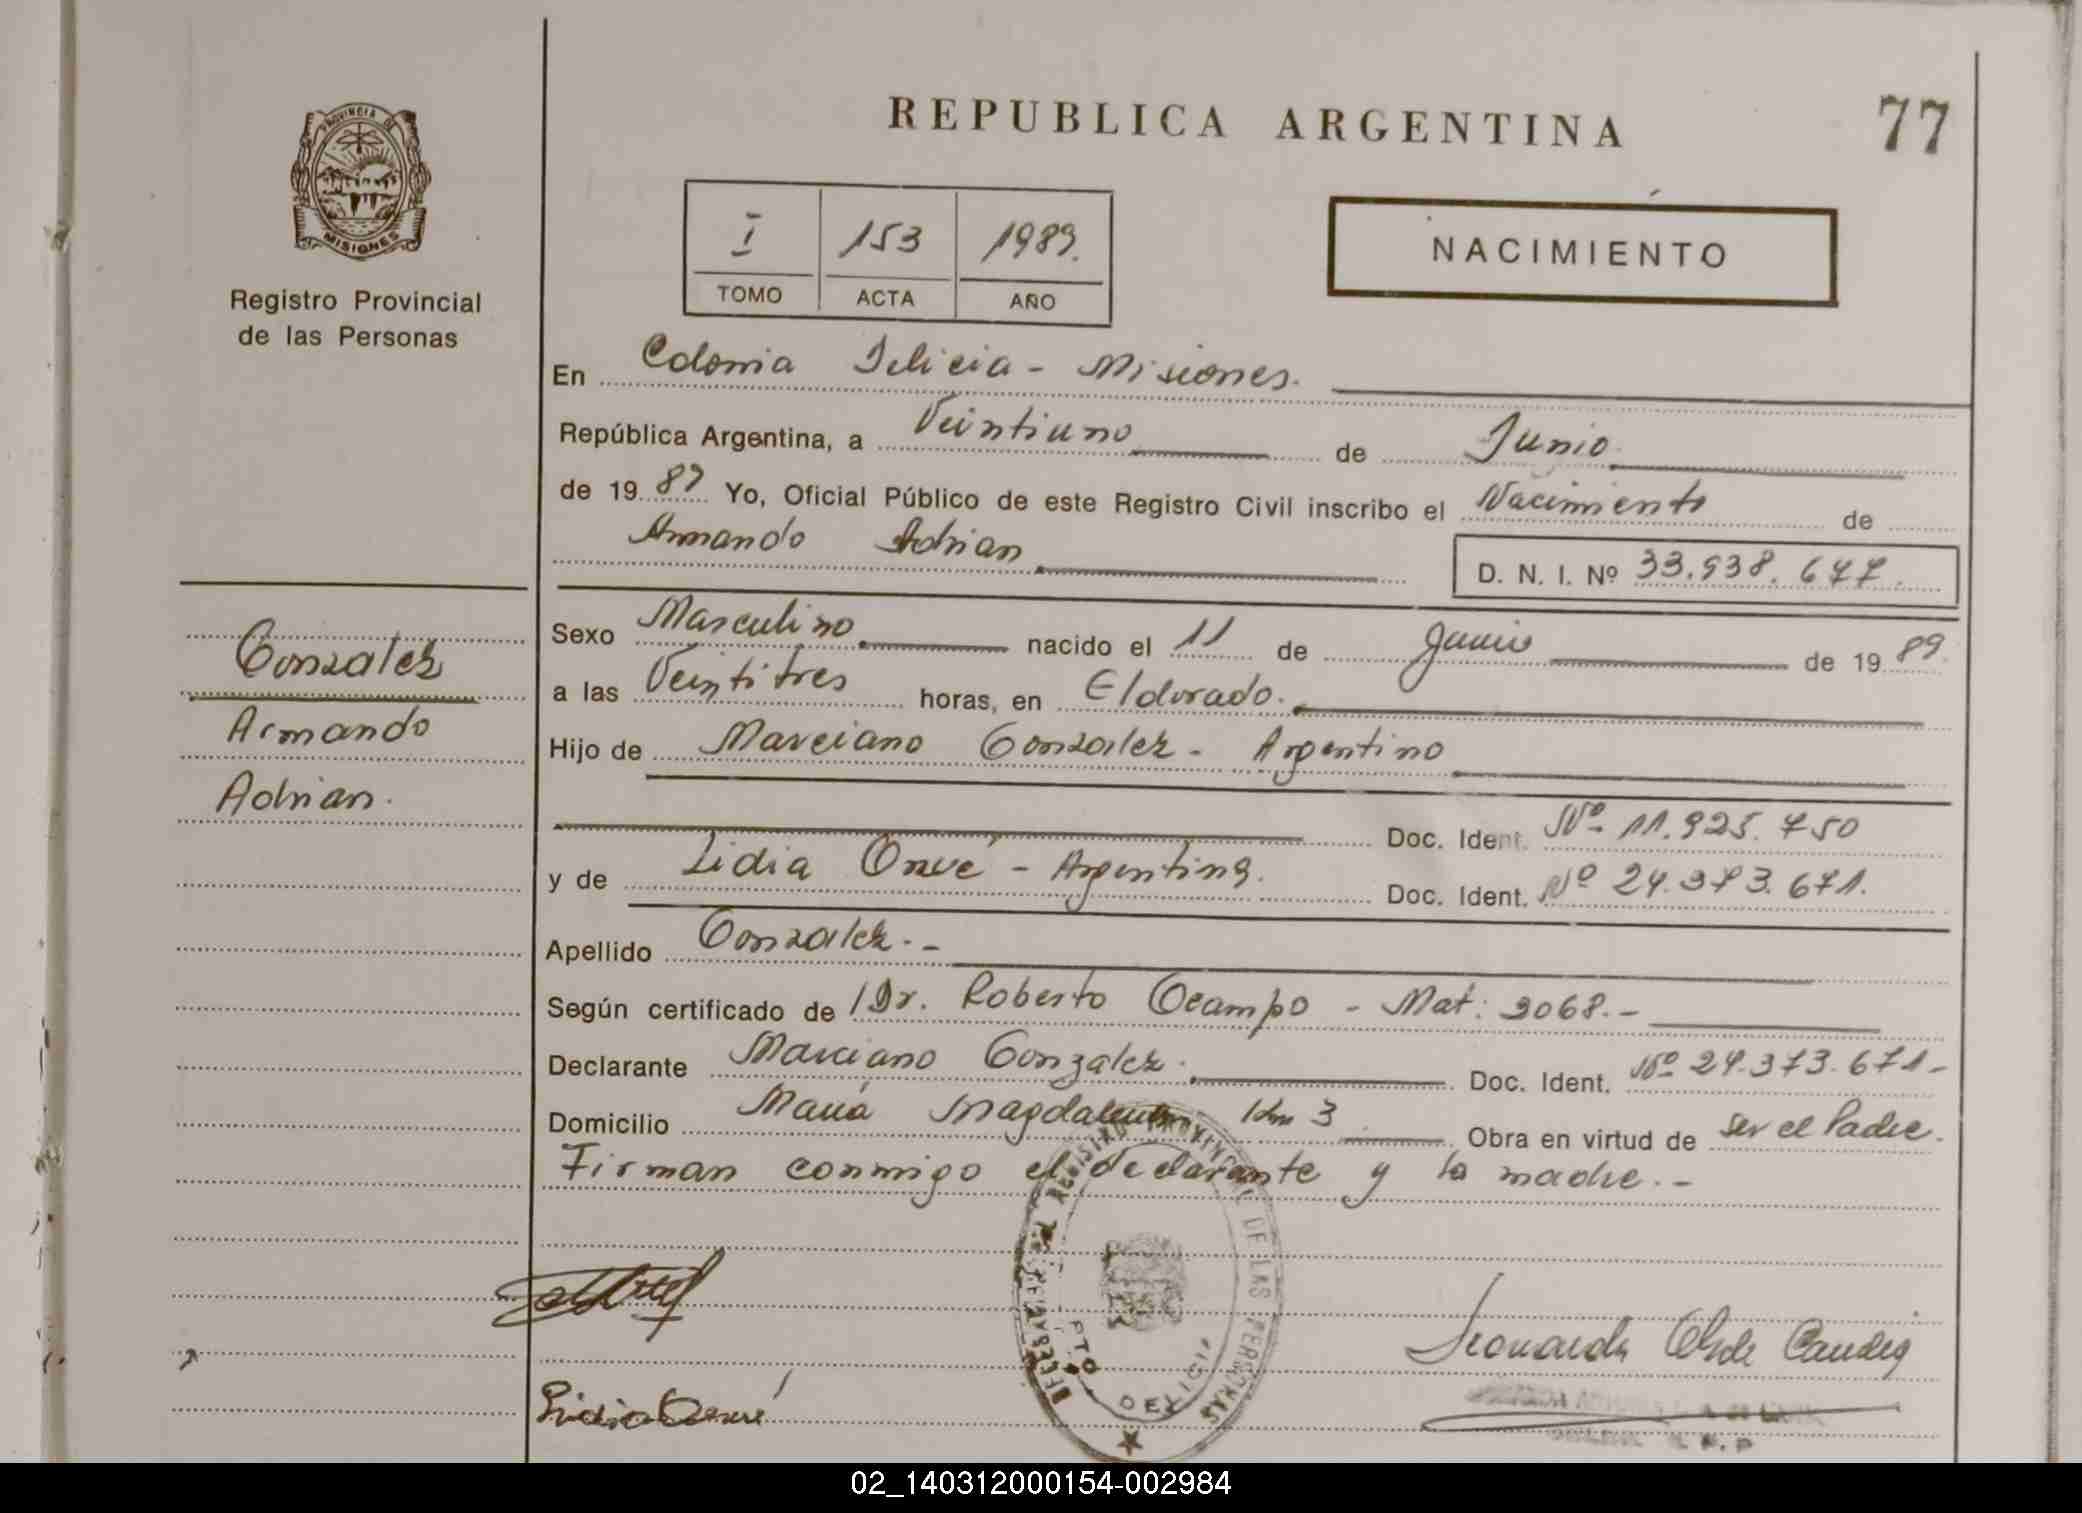 PROVINCIA DE
MISIONES
Registro Provincial
de las Personas
REPUBLICA ARGENTINA
77
I 153 1989.
TOMO ACTA AÑO
NACIMIENTO
En Colonia Delicia - Misiones.
República Argentina, a Veintiuno de Junio
de 19 89 Yo, Oficial Público de este Registro Civil inscribo el Nacimiento de
Armando Adrian D. N. I. Nº 33.938.677.
Gonzalez
Armando
Adrian.
Sexo Masculino nacido el 11 de Junio de 19 89
a las Veintitres horas, en Eldorado.
Hijo de Marciano Gonzalez - Argentino
Doc. Ident. Nº 11.925.750
y de Lidia - Argentina. Doc. Ident. Nº 24.373.671.
Apellido Gonzalez. -
Según certificado de Dr. Roberto Ocampo - Mat: 3068. -
Declarante Marciano Gonzalez. Doc. Ident. Nº 24.373.671 -
Domicilio María Magdalena Km 3 Obra en virtud de ser el Padre.
Firman conmigo el declarante y la madre. -
REGISTRO PROVINCIAL DE LAS PERSONAS
PTO DELICIA
Lidia
02_140312000154-002984